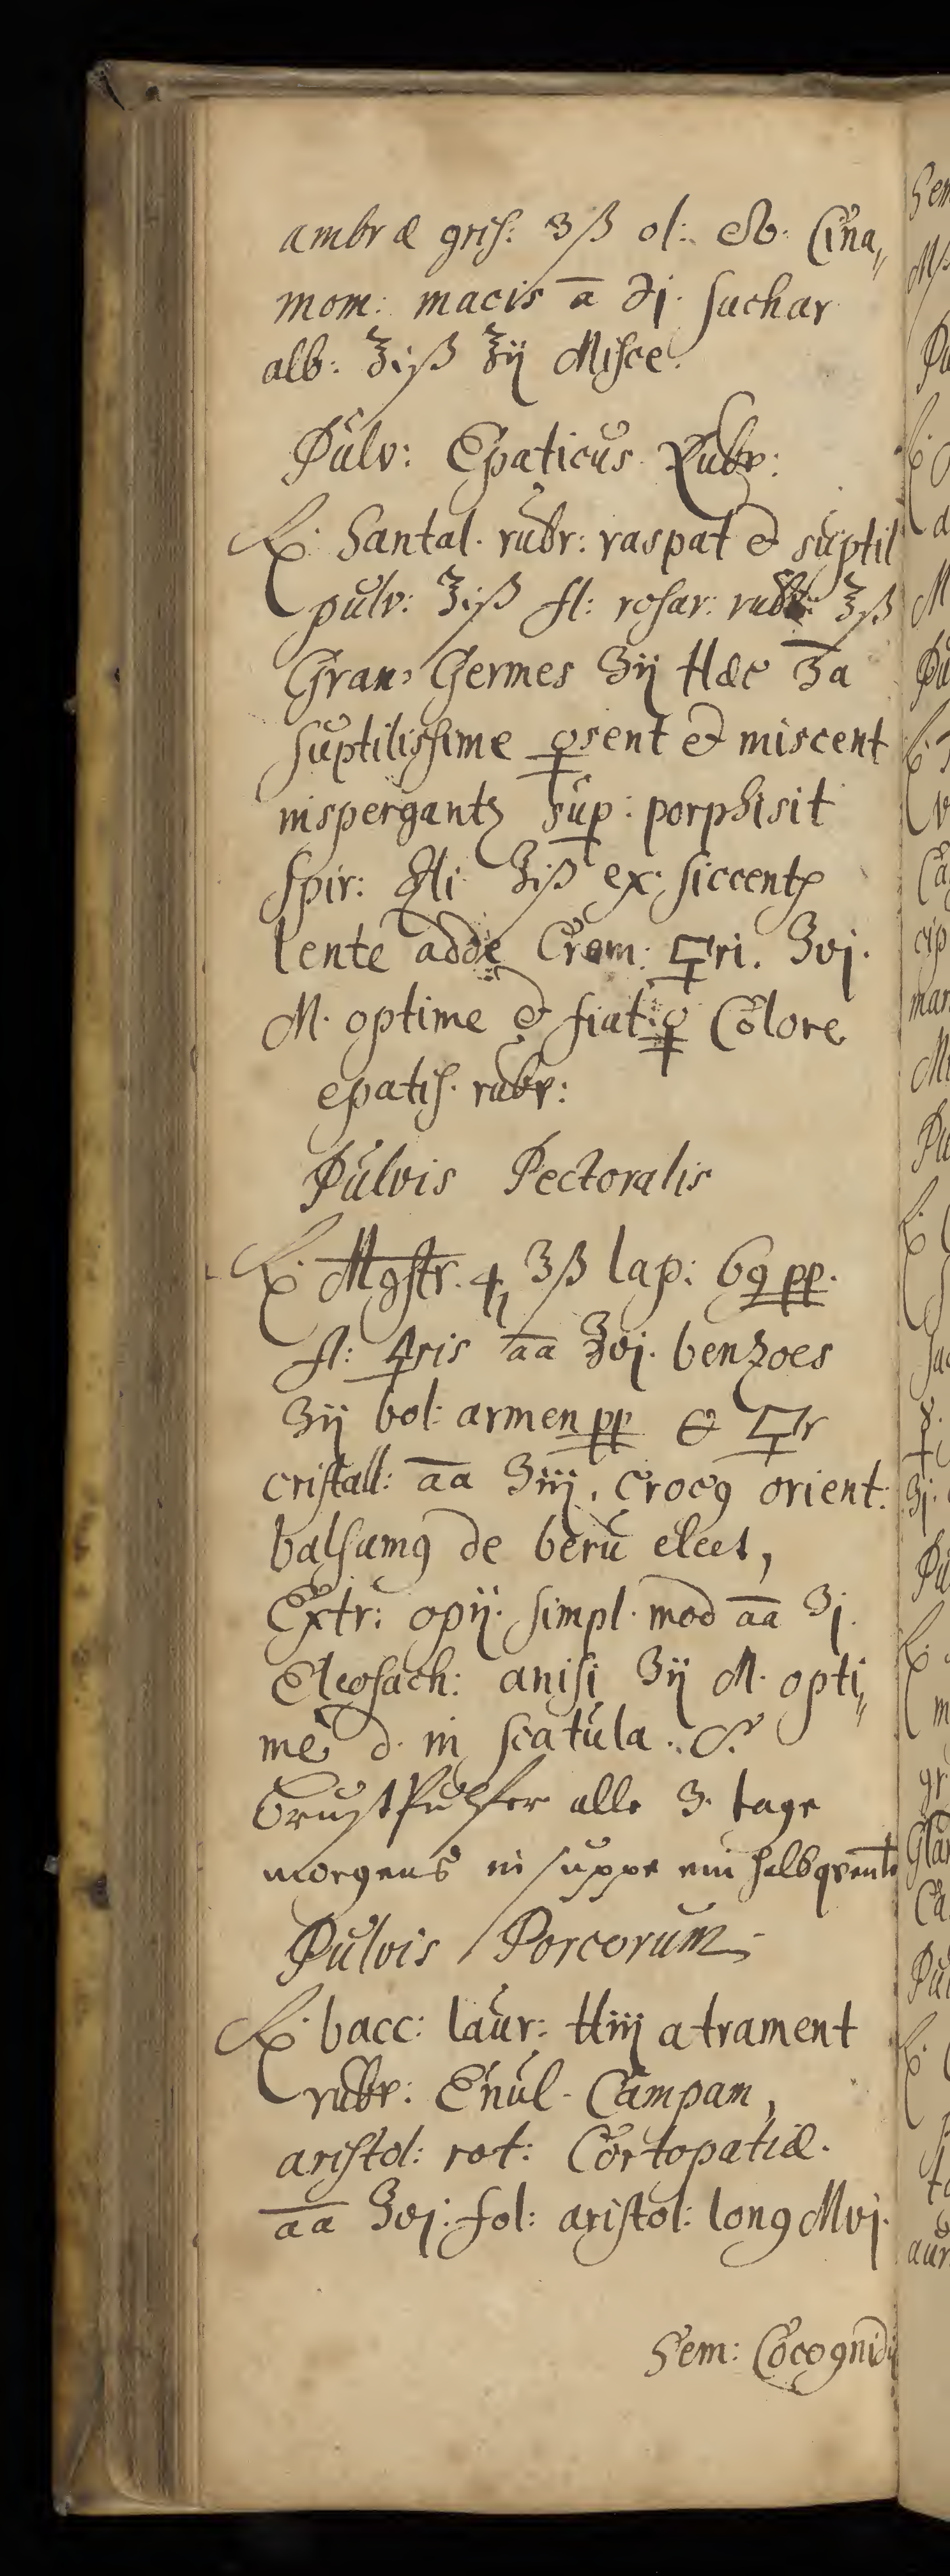 ambræ gris: ʒß ol: Cina„
mom: macis ā ℈j. sachar
alb: ℥iß ℥ij Misce.
Pulv: Epaticus Rubr:
℞. Santal. rubr: raspat & suptil
pulv: ℥iß fl: rosar: rubr: ℥ß
Gran: Germes ʒij Hæc ʒa
suptilissime sent & miscent
inspergantʒ sup: porphisit
Spir: ℥iß ex siccent
lente adde Crem: 🜿ri. ʒvj.
M. optime & fiat Colore
epatis. rubr:
Pulvis Pectoralis
℞. Mgstr. ♃ ʒß lap: 69 pp.
fl: 🜍ris āā ℥vj. benzoes
ʒij bol: armen pp & 🜿r
cristall: āā ʒiij. croc9 orient:
balsam9 de beru elect,
Extr: opij. simpl. mod āā ℈j.
Eleosach: anisi ʒij M. opti„
me d. in scatula. S.
brustpulfer alle 3. tage
morgens in suppe ein halb qventl
Pulvis Porcorum
℞. bacc: laur: ℔iij atrament
rubr: Enul. Campan,
aristol: rot: Cortopatiæ.
āā ℥vj. fol: aristol: long Mvj.
Sem: Cocognidij